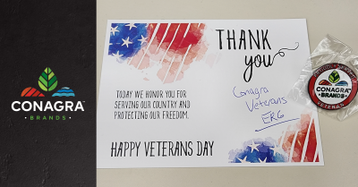 CONAGRA
BRANDS
THANK
you
TODAY WE HONOR YOU FOR
SERVING OUR COUNTRY AND
PROTECTING OUR FREEDOM.
Conagra
Veterans
ERG
HAPPY VETERANS DAY
CONAGRA
BRANDS
VETERAN